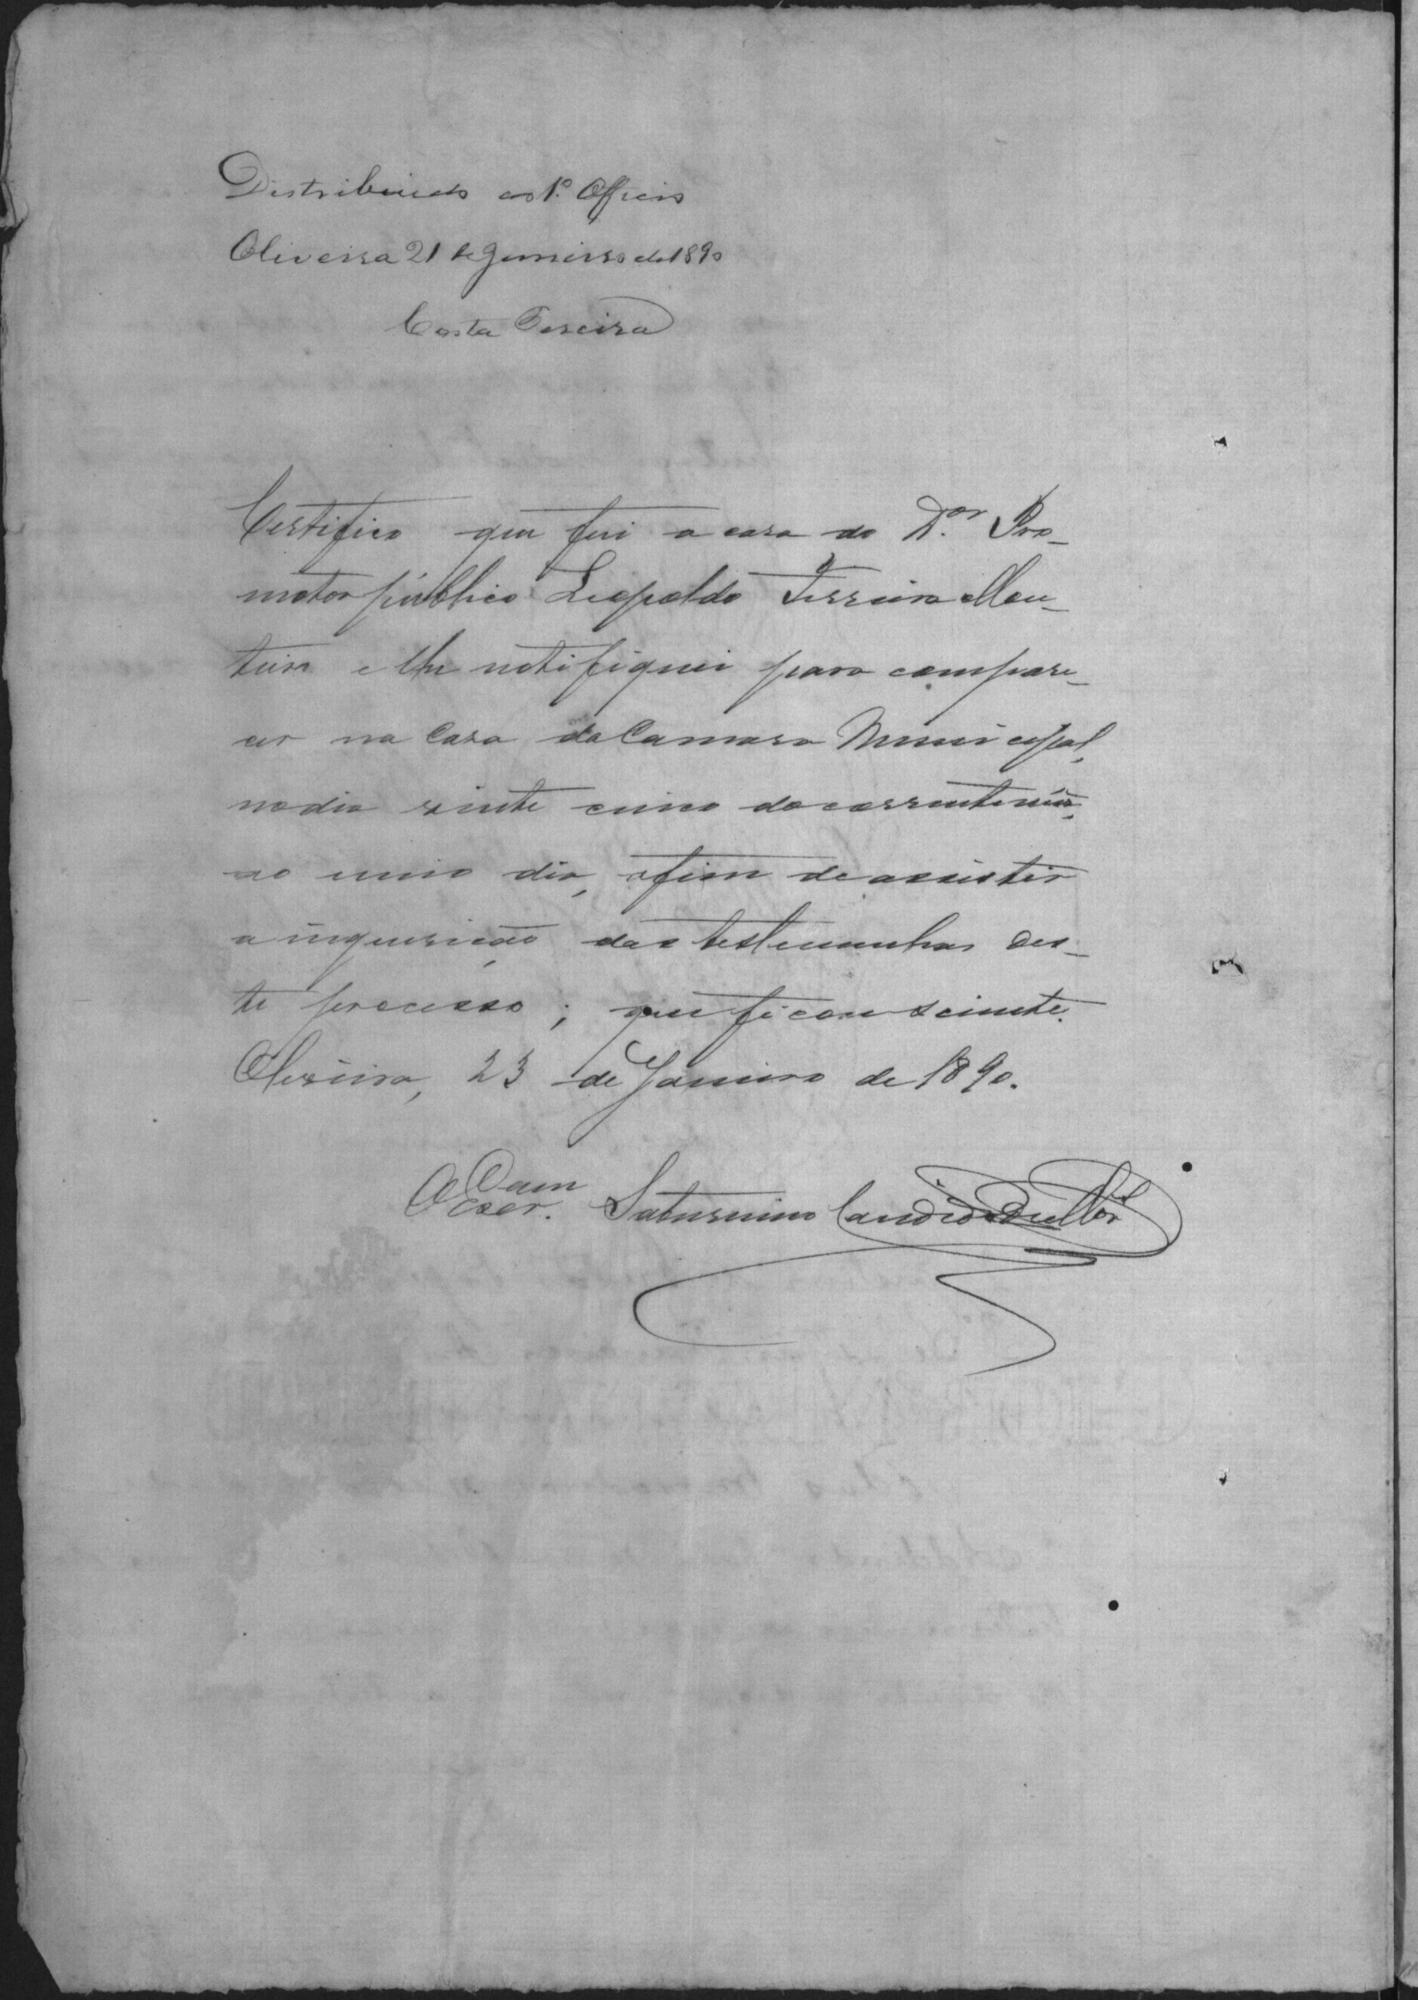 Distribuido ao 1º. Officio
Oliveira 21 de Janeiro de 1890
Costa Pereira
Certifico que fui a casa do Dor. Pro-
motor público Leopoldo Ferreira Mon-
teiro e lhe notifiquei para compare-
cer na Casa da Camara Municipal,
no dia vinte cinco do corrente mês,
ao meio dia, afim de assistir
a inquirição das testemunhas des-
te processo; que ficou sciente.
Oliveira, 23 de Janeiro de 1890.
O Escr. Saturnino Candido